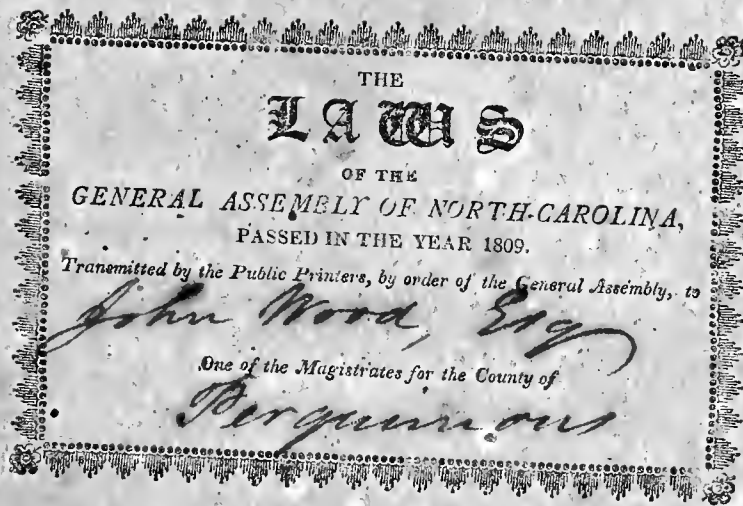 THE
LAWS
OF THE
GENERAL ASSEMBLY OF NORTH-CAROLINA,
PASSED IN THE YEAR 1809.
Transmitted by the Public Printers, by order of the General Assembly, to
John Wood, Esq
One of the Magistrates for the County of
Perquimons